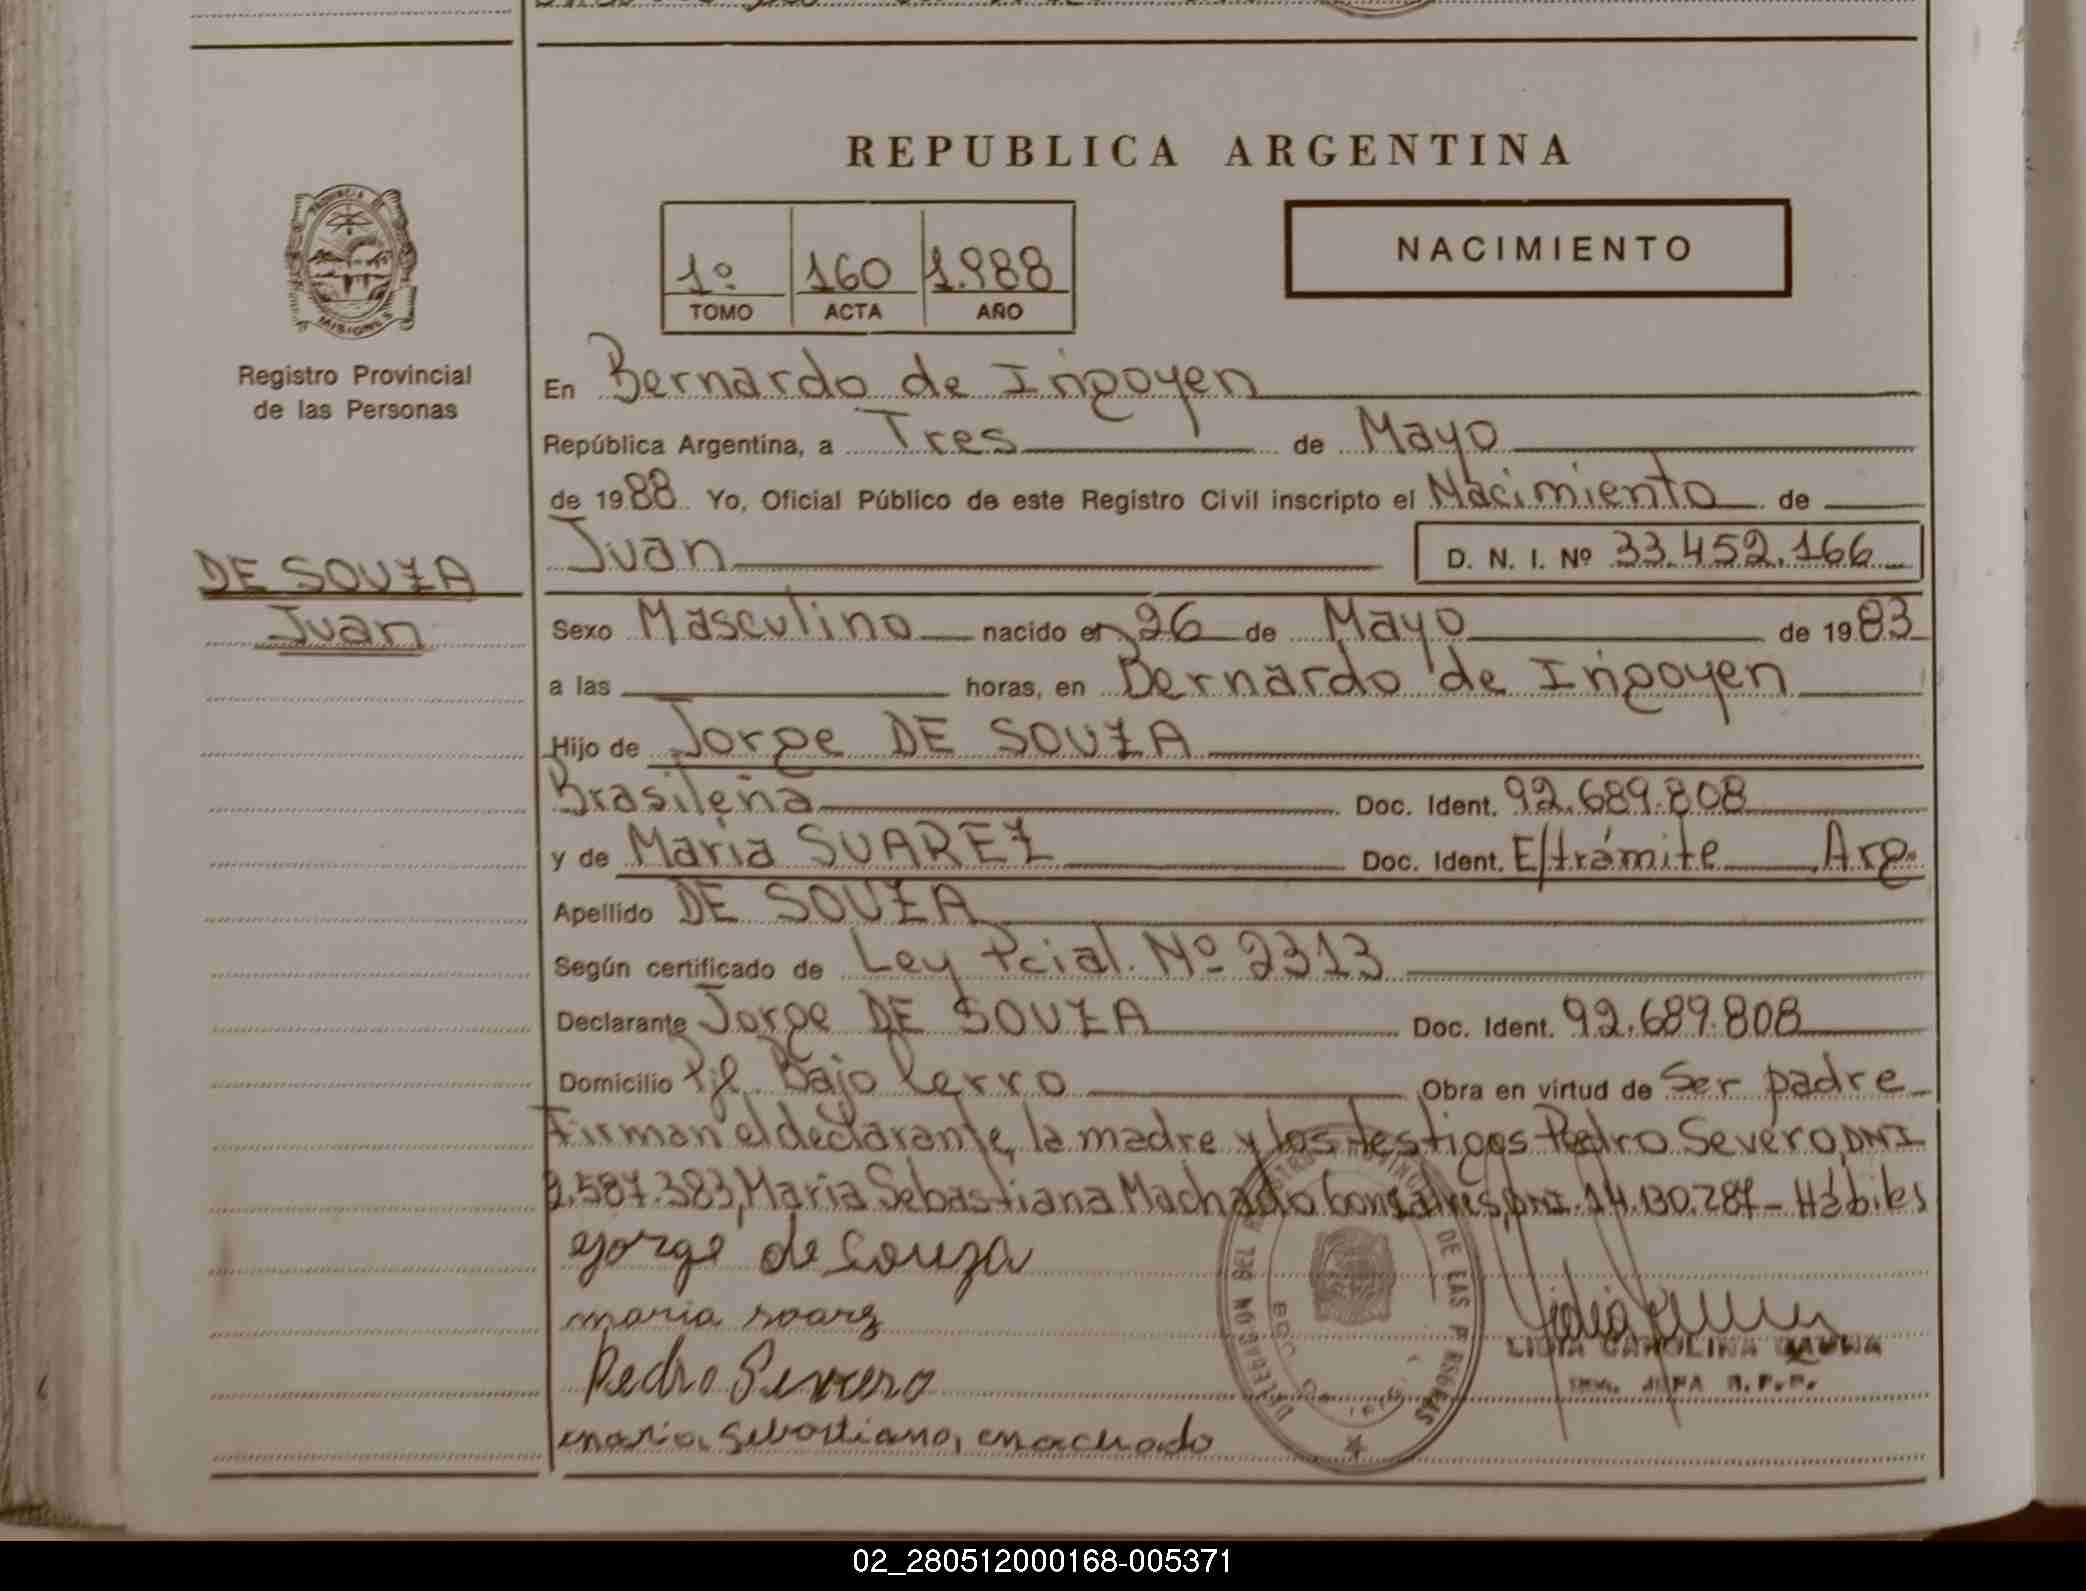 REPUBLICA ARGENTINA
1º 160 1.988
TOMO ACTA AÑO
NACIMIENTO
PROVINCIA DE
MISIONES
Registro Provincial
de las Personas
DE SOUZA
Juan
En Bernardo de Irigoyen
República Argentina, a Tres de Mayo
de 1988 Yo, Oficial Público de este Registro Civil inscripto el Nacimiento de
Juan D. N. I. Nº 33.452.166
Sexo Masculino nacido en 26 de Mayo de 1983
a las horas, en Bernardo de Irigoyen
Hijo de Jorge DE SOUZA
Brasileña Doc. Ident. 92.689.808
y de Maria SUAREZ Doc. Ident. E/trámite Arg.
Apellido DE SOUZA
Según certificado de Ley Pcial. Nº 2313
Declarante Jorge DE SOUZA Doc. Ident. 92.689.808
Domicilio Pje. Bajo Cerro Obra en virtud de Ser padre
Firman el declarante, la madre y los testigos Pedro Severo, DNI
2.587.383, Maria Sebastiana Machado Gonsalves, DNI. 14.130.287 - Hábiles
Gorge de Souza
maria soarz
Pedro Severo
maria, sebastiana, machado
DE LAS PERSONAS
LIDIA CAROLINA
JEFA R.P.P.
02_280512000168-005371